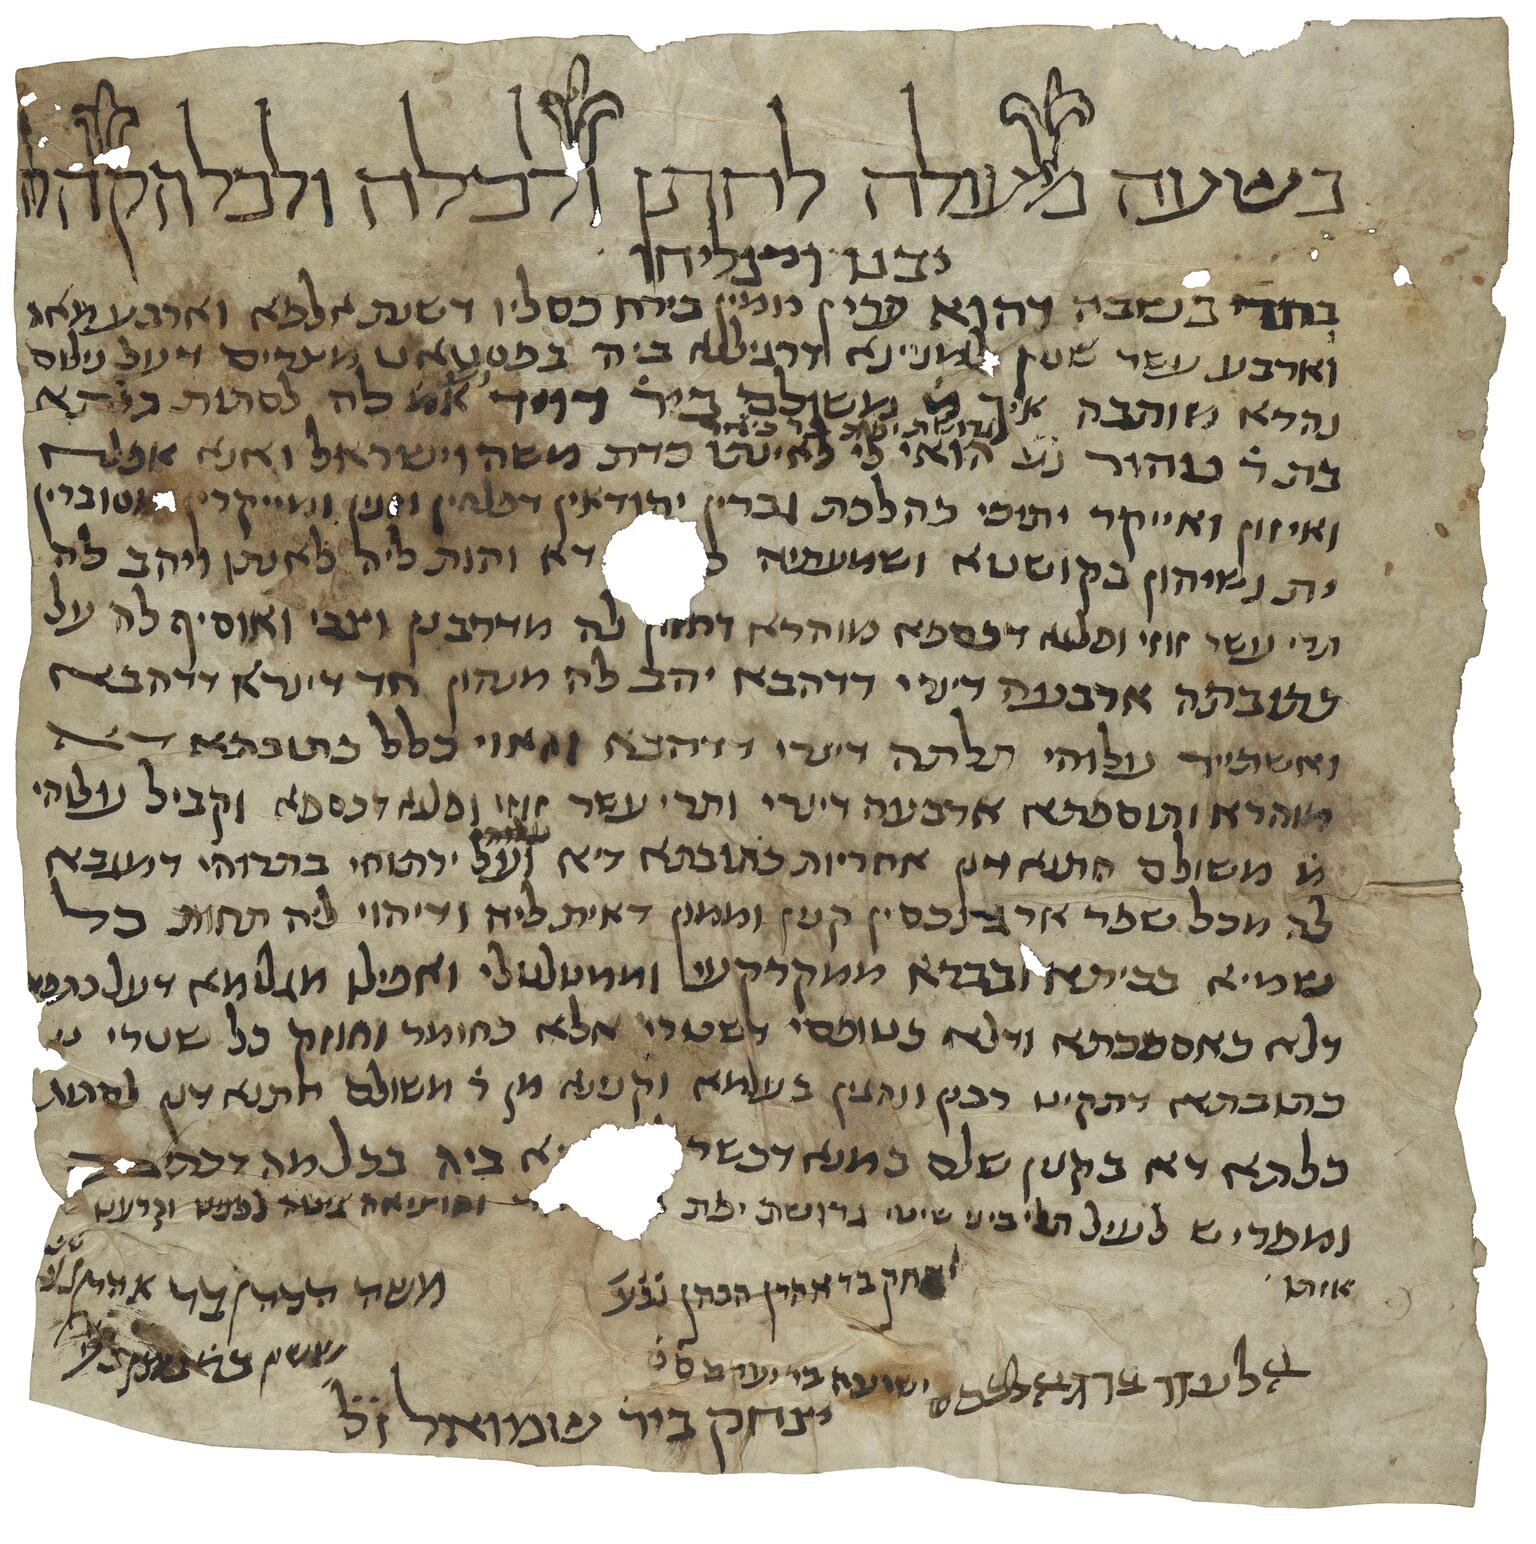 בשעה מעולה לחתן ולכלה ולכל הקהל
יבנו ויצליחו
בחד בשבה דהוא עשרין יומין בירח כסליו דשנת אלפא וארבע מאה
וארבע עשר שנין למניינא דרגיליא ביה בפסטאט מצרים דעל נילוס
נהרא מותבה איך מ משולם ביר דויד אמ לה לסתות כלתא
גרושת
בת ר טהור נע הואי לי לאינתו כדת משה וישראל ואנא אפלח
ואיזון ואייקר יתיכי כהלכת גברין יהודאין דפלחין וזנין ומייקרין ומוברין
ית נשיהון בקושטא ושמעתיה דא והות ליה לאנתו ויהב לה
תרי עשר זוזי ופלגא דכספא מוהרא דחזון לה מדרבנן וצבי ואוסיף לה על
כתובתה ארבעה דינרי דדהבא יהב לה מנהון חד דינרא דדהבא
ואשתייר עלוהי תלתה דינרי דדהבא והאוי כלל כתובתא דא
מוהרא ותוספתא ארבעה דינרי ותרי עשר זוזי ופלגא דכספא וקביל עלוהי
מ משולם חתנא דנן אחריות כתובתא דא ועל ירתוהי בתרוהי דמגבא
לה מכל שפר ארג נכסין קנין וממון דאית ליה ודיהוי ליה תחות כל
שמיא בביתא ובברא ממקרקעי וממטלטלי ואפילו מגלימא דעל כתפא
דלא כאסמכתא ודלא כטופסי דשטרי אלא כחומר וחוזק כל שטרי
כתובתא דתקינו רבנן ונהגין בעלמא וקנינא מן ר משולם חתנא דנן לסתות
כלתא דא בקנין שלם במנא דכשר ביה בכל מה דכתיב
ומפריש לעיל תלי ביני שיטי גרושת יפת
איתו
יצחק בר אהרן הכהן נבע משה הכהן בר אהרן
אלעזר בר ישועה בר יעקב ששון בר
יצחק ביר שמואל זל